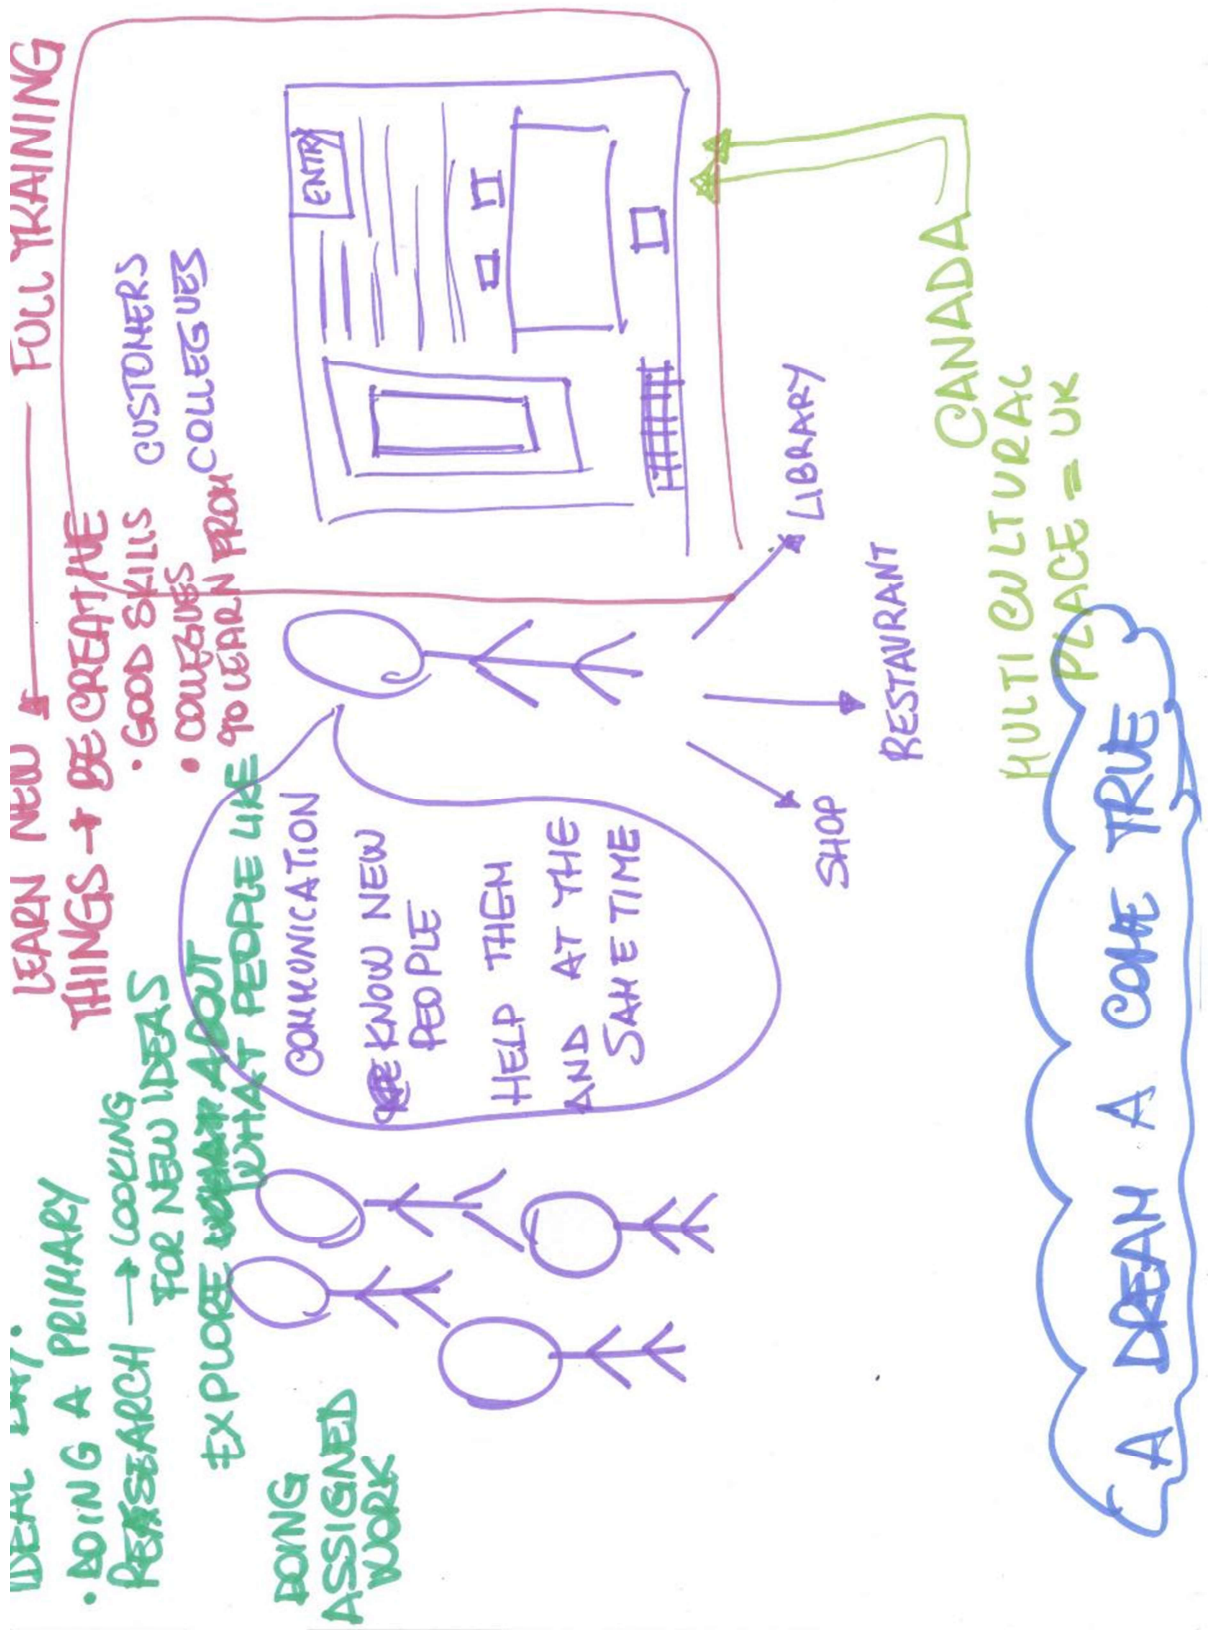 IDEAL DAY.
• DOING A PRIMARY
RESEARCH → LOOKING
FOR NEW IDEAS
EXPLORE ABOUT
WHAT PEOPLE LIKE
DOING
ASSIGNED
WORK
LEARN NEW
THINGS → BE CREATIVE
• GOOD SKILLS
• COLLEGUES
TO LEARN FROM
FULL TRAINING
CUSTOMERS
COLLEGUES
ENTRY
COMMUNICATION
KNOW NEW
PEOPLE
HELP THEM
AND AT THE
SAME TIME
SHOP
RESTAURANT
LIBRARY
CANADA
MULTICULTURAL
PLACE = UK
A DREAM A COME TRUE